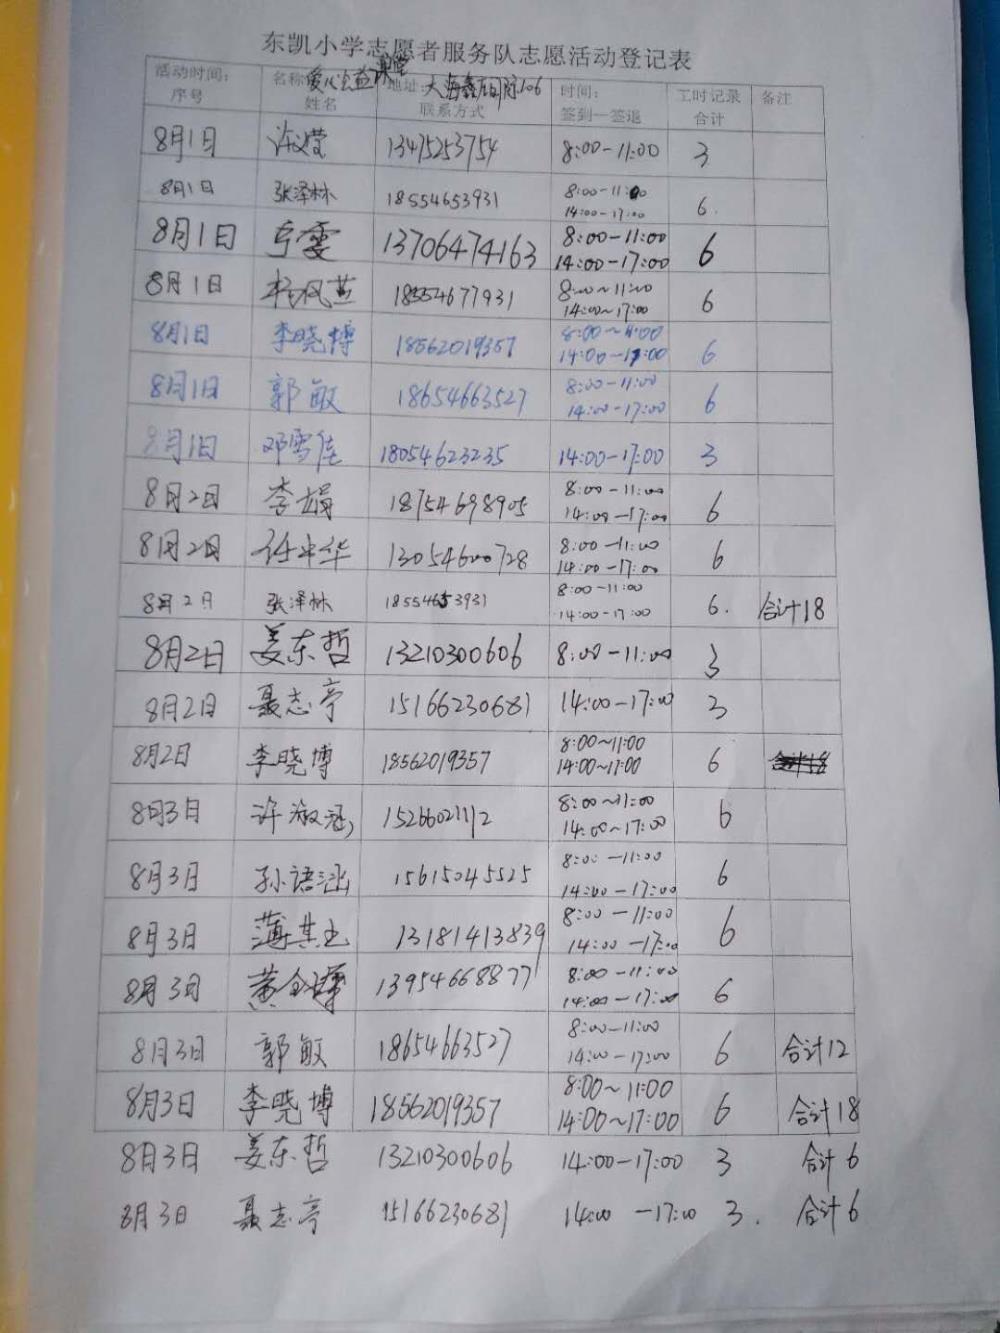 东凯小学志愿者服务队志愿活动登记表
活动时间: 名称: 爱心公益课堂 地址: 大海鑫 106 时间: 工时记录 备注
序号 姓名 联系方式 签到一签退 合计
8月1日 13475253754 8:00-11:00 3
8月1日 张泽林 18554653931 8:00-11:00 14:00-17:00 6.
8月1日 13706474163 8:00-11:00 14:00-17:00 6
8月1日 18554677931 8:00~11:00 14:00~17:00 6
8月1日 李晓博 18562019357 8:00~11:00 14:00-17:00 6
8月1日 郭敏 18654663527 8:00-11:00 14:00-17:00 6
8月1日 邓雪佳 18054623235 14:00-17:00 3
8月2日 李娟 18754698905 8:00-11:00 14:00-17:00 6
8月2日 任中华 13054600728 8:00-11:00 14:00-17:00 6
8月2日 张泽林 18554653931 8:00-11:00 14:00-17:00 6. 合计18
8月2日 姜东哲 13210300606 8:00-11:00 3
8月2日 聂志亭 15166230681 14:00-17:00 3
8月2日 李晓博 18562019357 8:00~11:00 14:00~17:00 6
8月3日 许淑涵 15266021112 8:00~11:00 14:00~17:00 6
8月3日 孙语涵 15615045525 8:00-11:00 14:00-17:00 6
8月3日 薄其玉 13181413839 8:00-11:00 14:00-17:00 6
8月3日 13954668877 8:00-11:00 14:00-17:00 6
8月3日 郭敏 18654663527 8:00-11:00 14:00-17:00 6 合计12
8月3日 李晓博 18562019357 8:00~11:00 14:00~17:00 6 合计18
8月3日 姜东哲 13210300606 14:00-17:00 3 合计6
8月3日 聂志亭 15166230681 14:00-17:00 3. 合计6